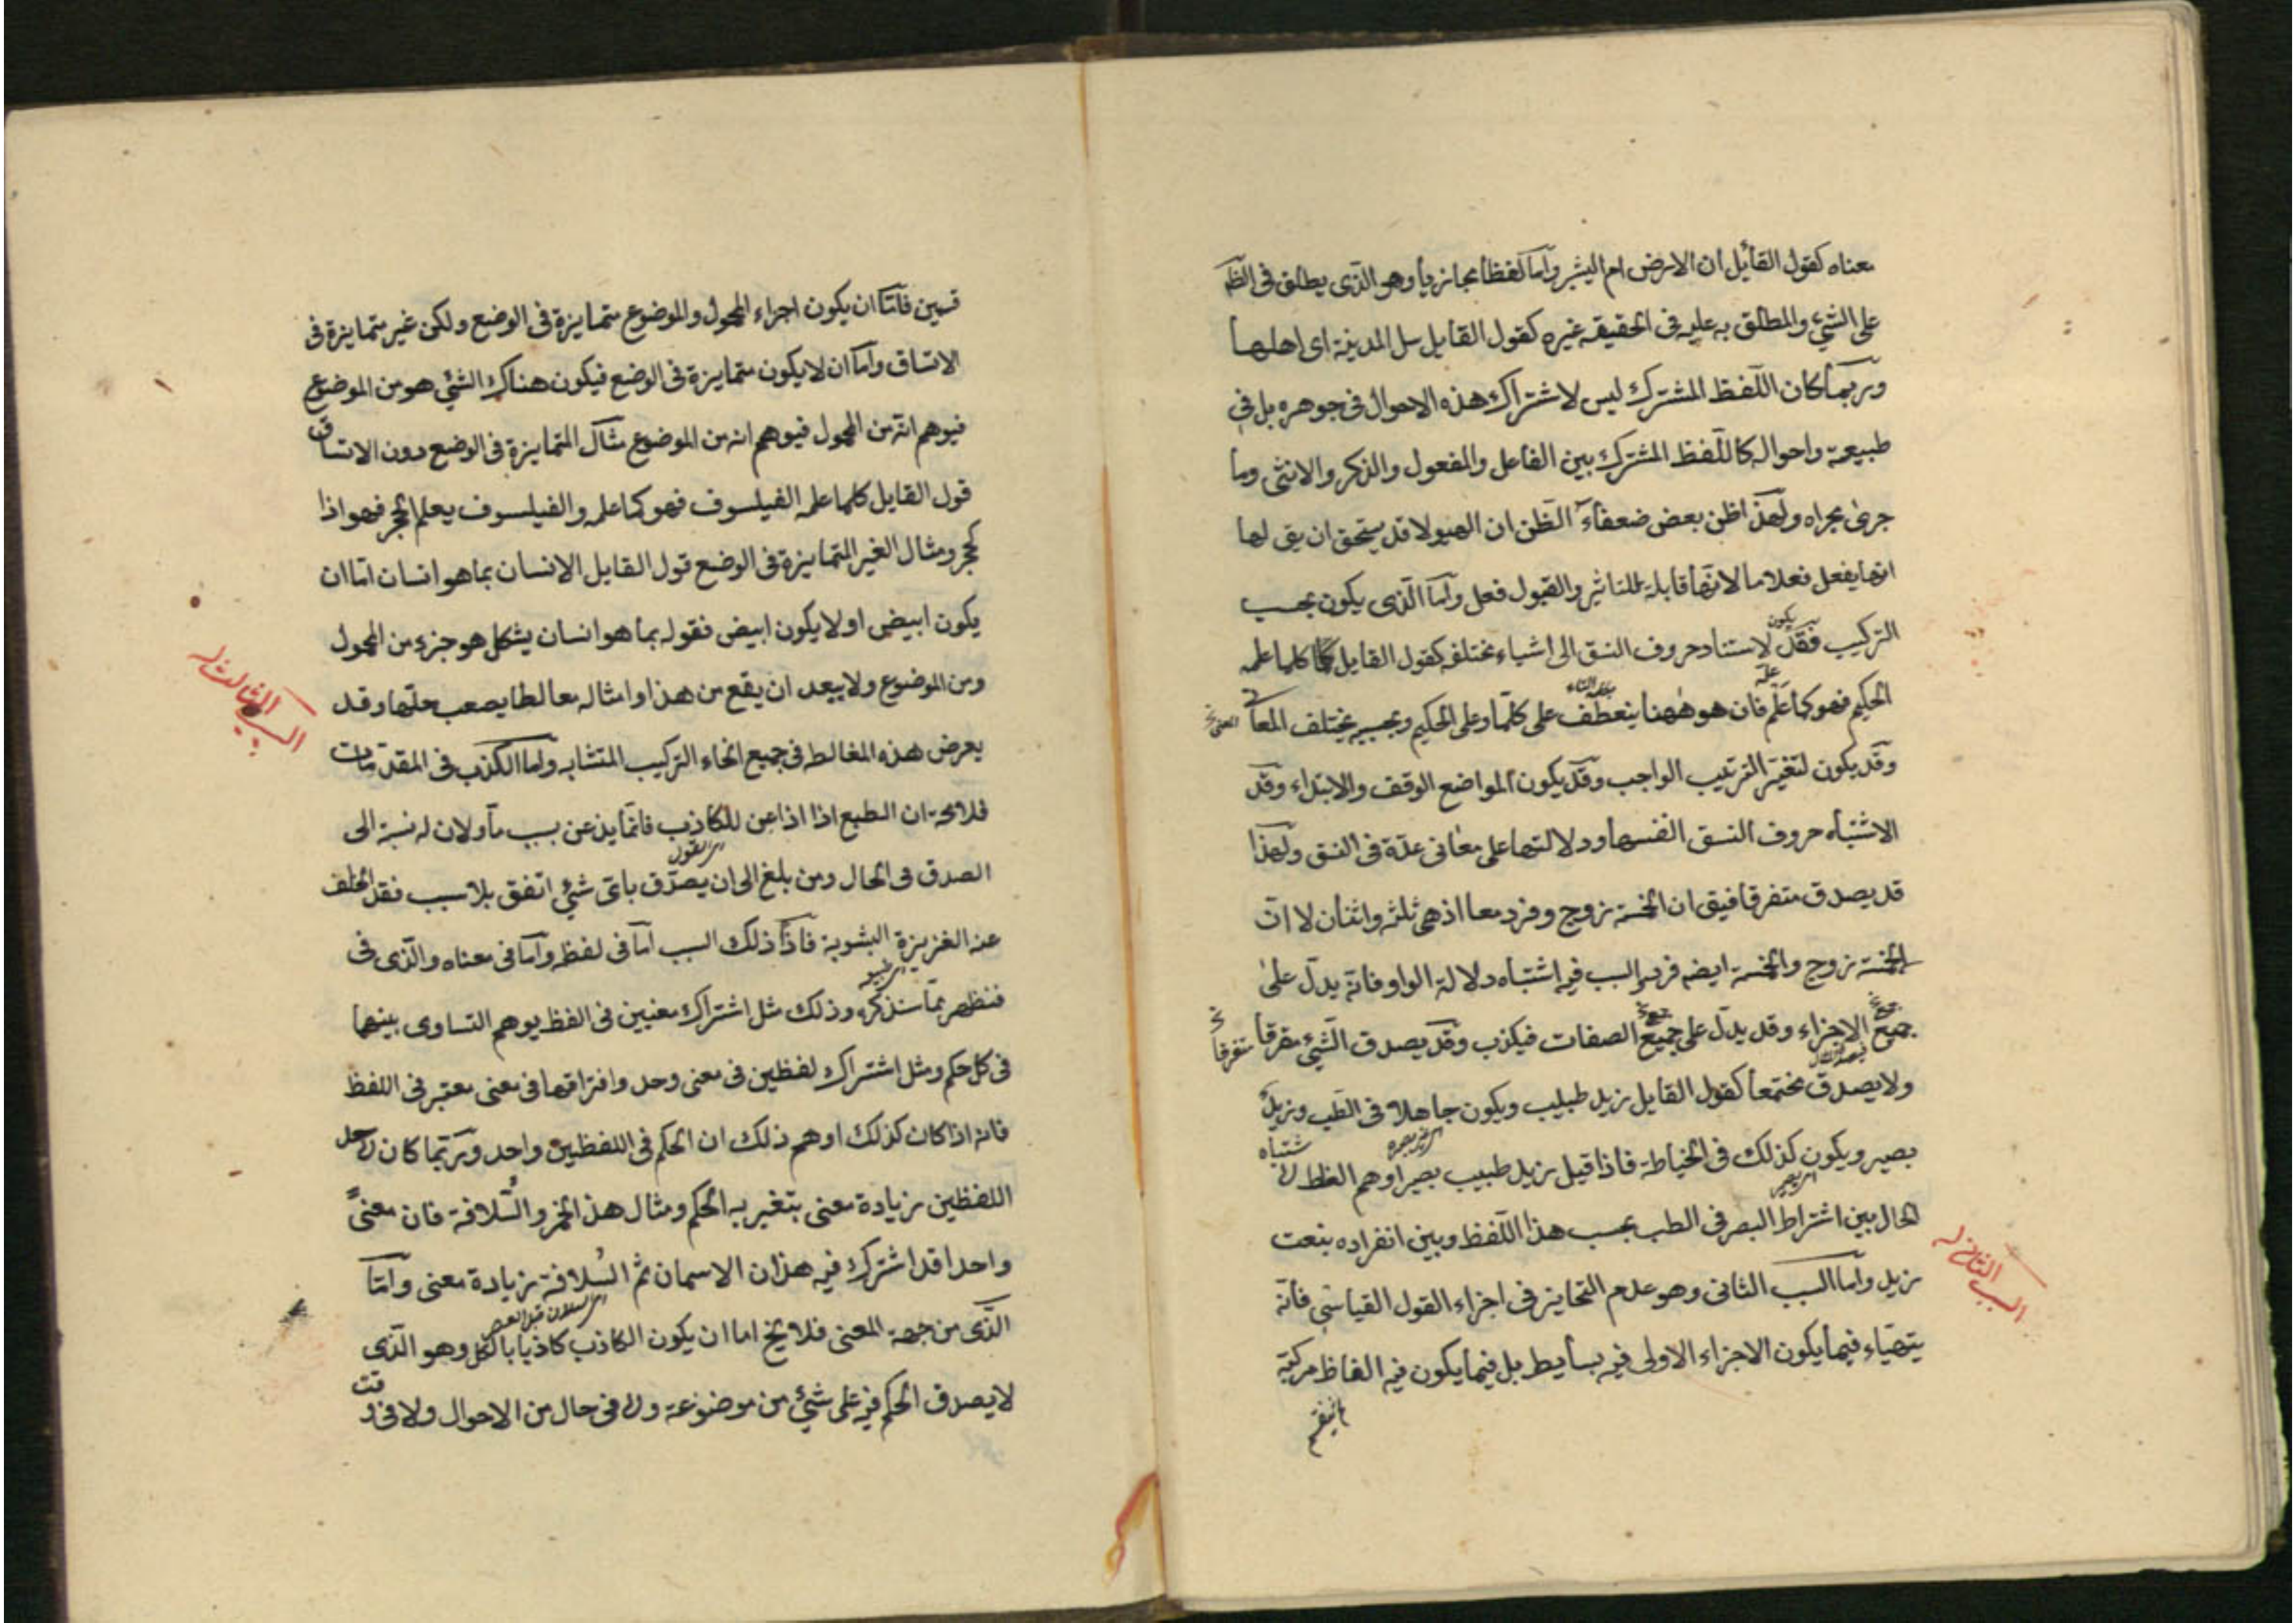 معناه كقول القائل ان الارض ام البشر واما لفظا مجازيا وهو الذى يطلق فى الظ
على الشئ والمطلق به عليه فى الحقيقه غيره كقول القايل سل المدينة اى اهلها
وربما كان اللفظ المشترك ليس لاشتراك هذه الاحوال فى جوهره بل فى
طبيعة واحواله كاللفظ المشترك بين الفاعل والمفعول والذكر والانثى وما
جرى مجراه ولهذا ظن بعض ضعفاء الظن ان الهيولا قد يستحق ان يق لها
انها يفعل فعلا ما لانها قابلة للتاثير والقبول فعل واما الذى يكون بحسب
يكون
التركيب فقد لاستناد حروف النسق الى اشياء مختلفه كقول القايل كلما علمه
علمه
الحكيم فهو كما علم فان هو ههنا ينعطف على كلما وعلى الحكيم وبحسبه يختلف المعا
المعنى خ
وقد يكون لتغير الترتيب الواجب وقد يكون لمواضع الوقف والابتداء وقد
الاشتباه حروف النسق انفسها ودلالتها على معانى عدة فى النسق ولهذا
قد يصدق متفرقا فيق ان الخمسة زوج وفرد معا اذ هى ثلثه واثنان لا ان
الخمسة زوج والخمسة ايضه فرد والسبب فيه اشتباه دلالة الواو فانه يدل على
جميع الاجزاء وقد يدل على جميع الصفات فيكذب وقد يصدق الشئ مفرقا
متفرقا خ
ولا يصدق مجتمعا كقول القايل زيد طبيب ويكون جاهلا فى الطب وزيد
بصير ويكون كذلك فى الخياطة فاذا قيل زيد طبيب بصير اوهم الغلط لا
شتباه
الحال بين اشتراط البصر فى الطب بحسب هذا اللفظ وبين انفراده بنعت
زيد واما السبب الثانى وهو عدم التمايز فى اجزاء القول القياسى فانه
السبب الثانى
يتهياء فيما يكون الاجزاء الاولى فيه بسايط بل فيما يكون فيه الفاظ مركبة
قسمين فاما ان يكون اجزاء المحمول والموضوع متمايزة فى الوضع ولكن غير متمايزة فى
الاتساق واما ان لا يكون متمايزة فى الوضع فيكون هناك الشئ هو من الموضوع
فيوهم انه من المحمول فيوهم انه من الموضوع مثال المتمايزة فى الوضع دون الاتساق
قول القايل كلما علمه الفيلسوف فهو كما علمه والفيلسوف يعلم الحجر فهو اذا
كحجر ومثال الغير المتمايزة فى الوضع قول القايل الانسان بما هو انسان اما ان
يكون ابيض او لا يكون ابيض فقوله بما هو انسان يشكل هو جزء من المحمول
ومن الموضوع ولا يبعد ان يقع من هذا وامثاله مغالطا يصعب حلها وقد
السبب الثالث
يعرض هذه المغالطه فى جميع انحاء التركيب المتشابه واما الكذب فى المقدمات
فلا محة ان الطبع اذا اذعن للكاذب فانما يذعن بسبب ما ولان له نسبة الى
الصدق فى الحال ومن بلغ الى ان يصدق باى شئ اتفق بلا سبب فقد انخلف
عنه الغريزة البشوية فاذا ذلك السبب اما فى لفظه واما فى معناه والذى فى
فنظهر بما سنذكره وذلك مثل اشتراك معنيين فى الفظ يوهم التساوى بينهما
فى كل حكم ومثل اشتراك لفظين فى معنى وحد وافتراقهما فى معنى معتبر فى اللفظ
فانه اذا كان كذلك اوهم ذلك ان الحكم فى اللفظين واحد وربما كان لاحد
اللفظين زيادة معنى يتغير به الحكم ومثال هذا الخمر والسلافة فان معنىً
واحدا قد اشترك فيه هذان الاسمان ثم السلافة زيادة معنى واما
الذى من جهة المعنى فلا يخ اما ان يكون الكاذب كاذبا بالكل وهو الذى
لا يصدق الحكم فيه على شئ من موضوعة ولا فى حال من الاحوال ولا فى وقت